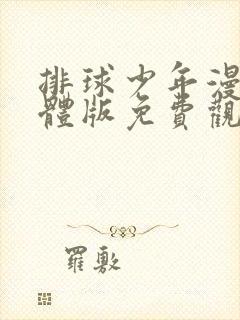 排球少年漫
體版免費觀
羅敷